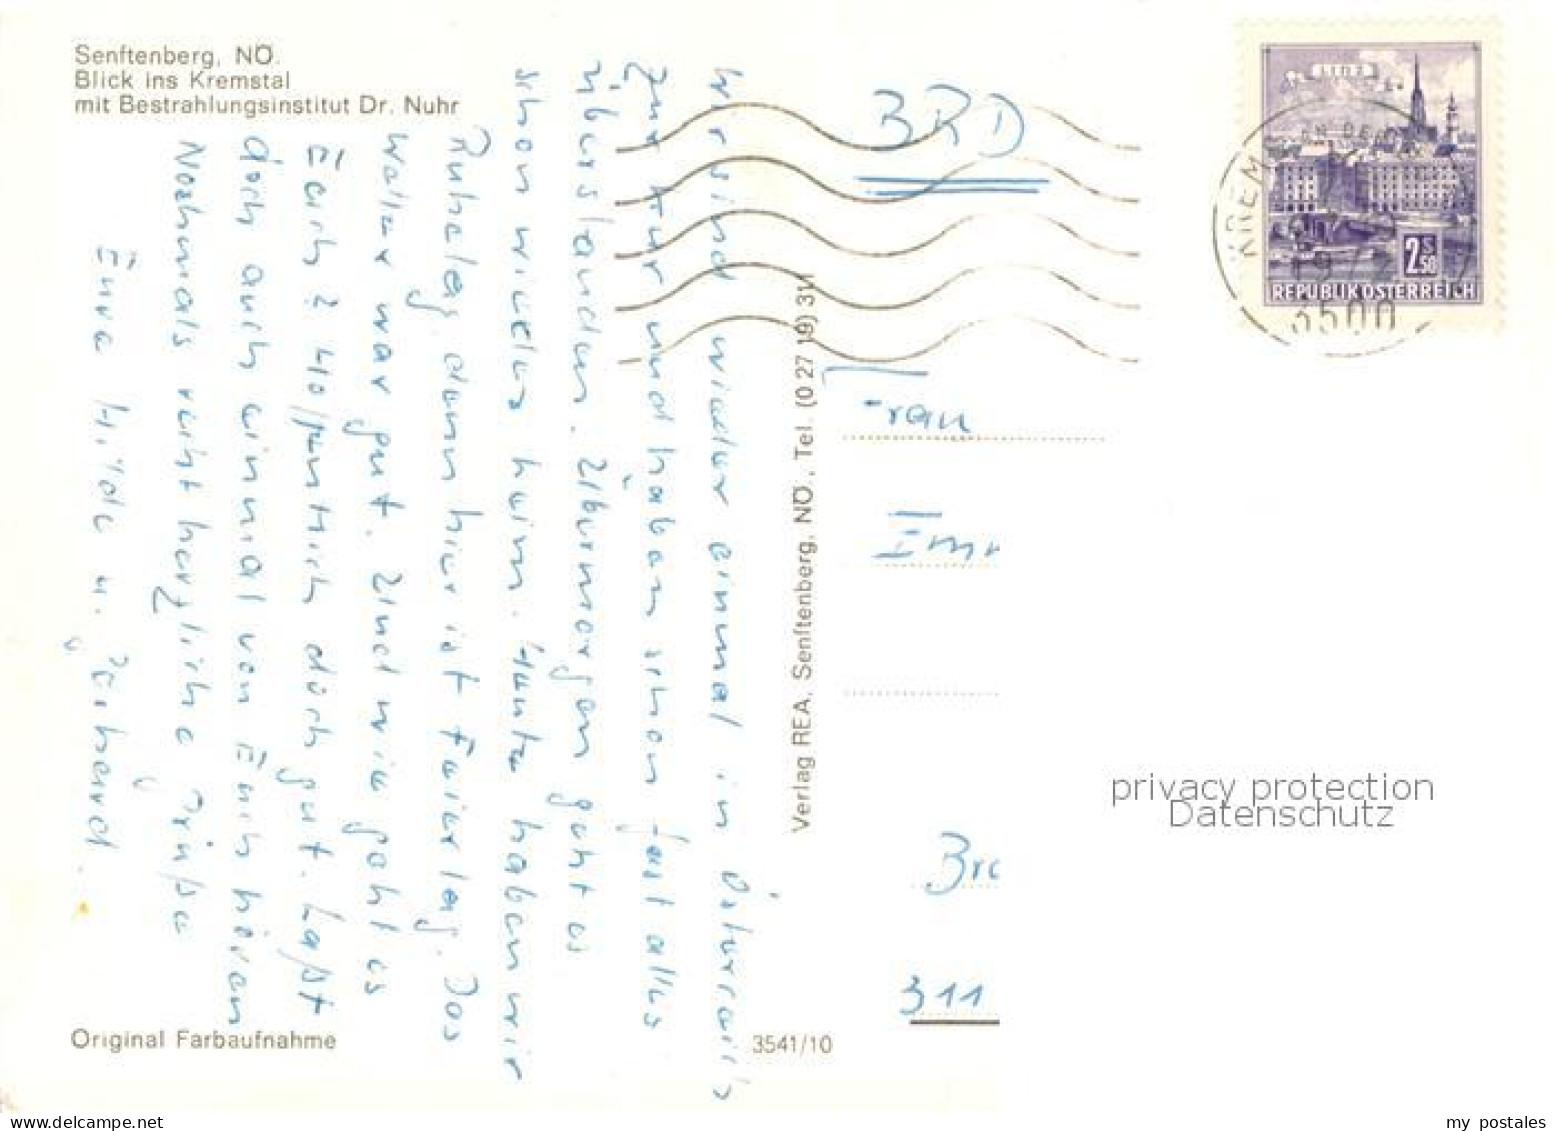 Senftenberg, NÖ.
Blick ins Kremstal
mit Bestrahlungsinstitut Dr. Nuhr
Wir sind wieder einmal in Österreich
zur Kur und haben schon fast alles
überstanden. Übermorgen geht es
schon wieder heim. Heute haben wir
Ruhetag, denn hier ist Feiertag. Das
Wetter war gut. Und wie geht es
Euch? Hoffentlich doch gut. Laßt
doch auch einmal von Euch hören
Nochmals recht herzliche Grüße
Eure Hilde u. Gerhard.
Original Farbaufnahme
3541/10
Verlag REA, Senftenberg, NÖ., Tel. (0 27 19) 31
BRD
LINZ
2 S 50
REPUBLIK ÖSTERREICH
KREMS AN DER
1972
3500
Frau
Irm
Bra
311
privacy protection
Datenschutz
www.delcampe.net
my_postales